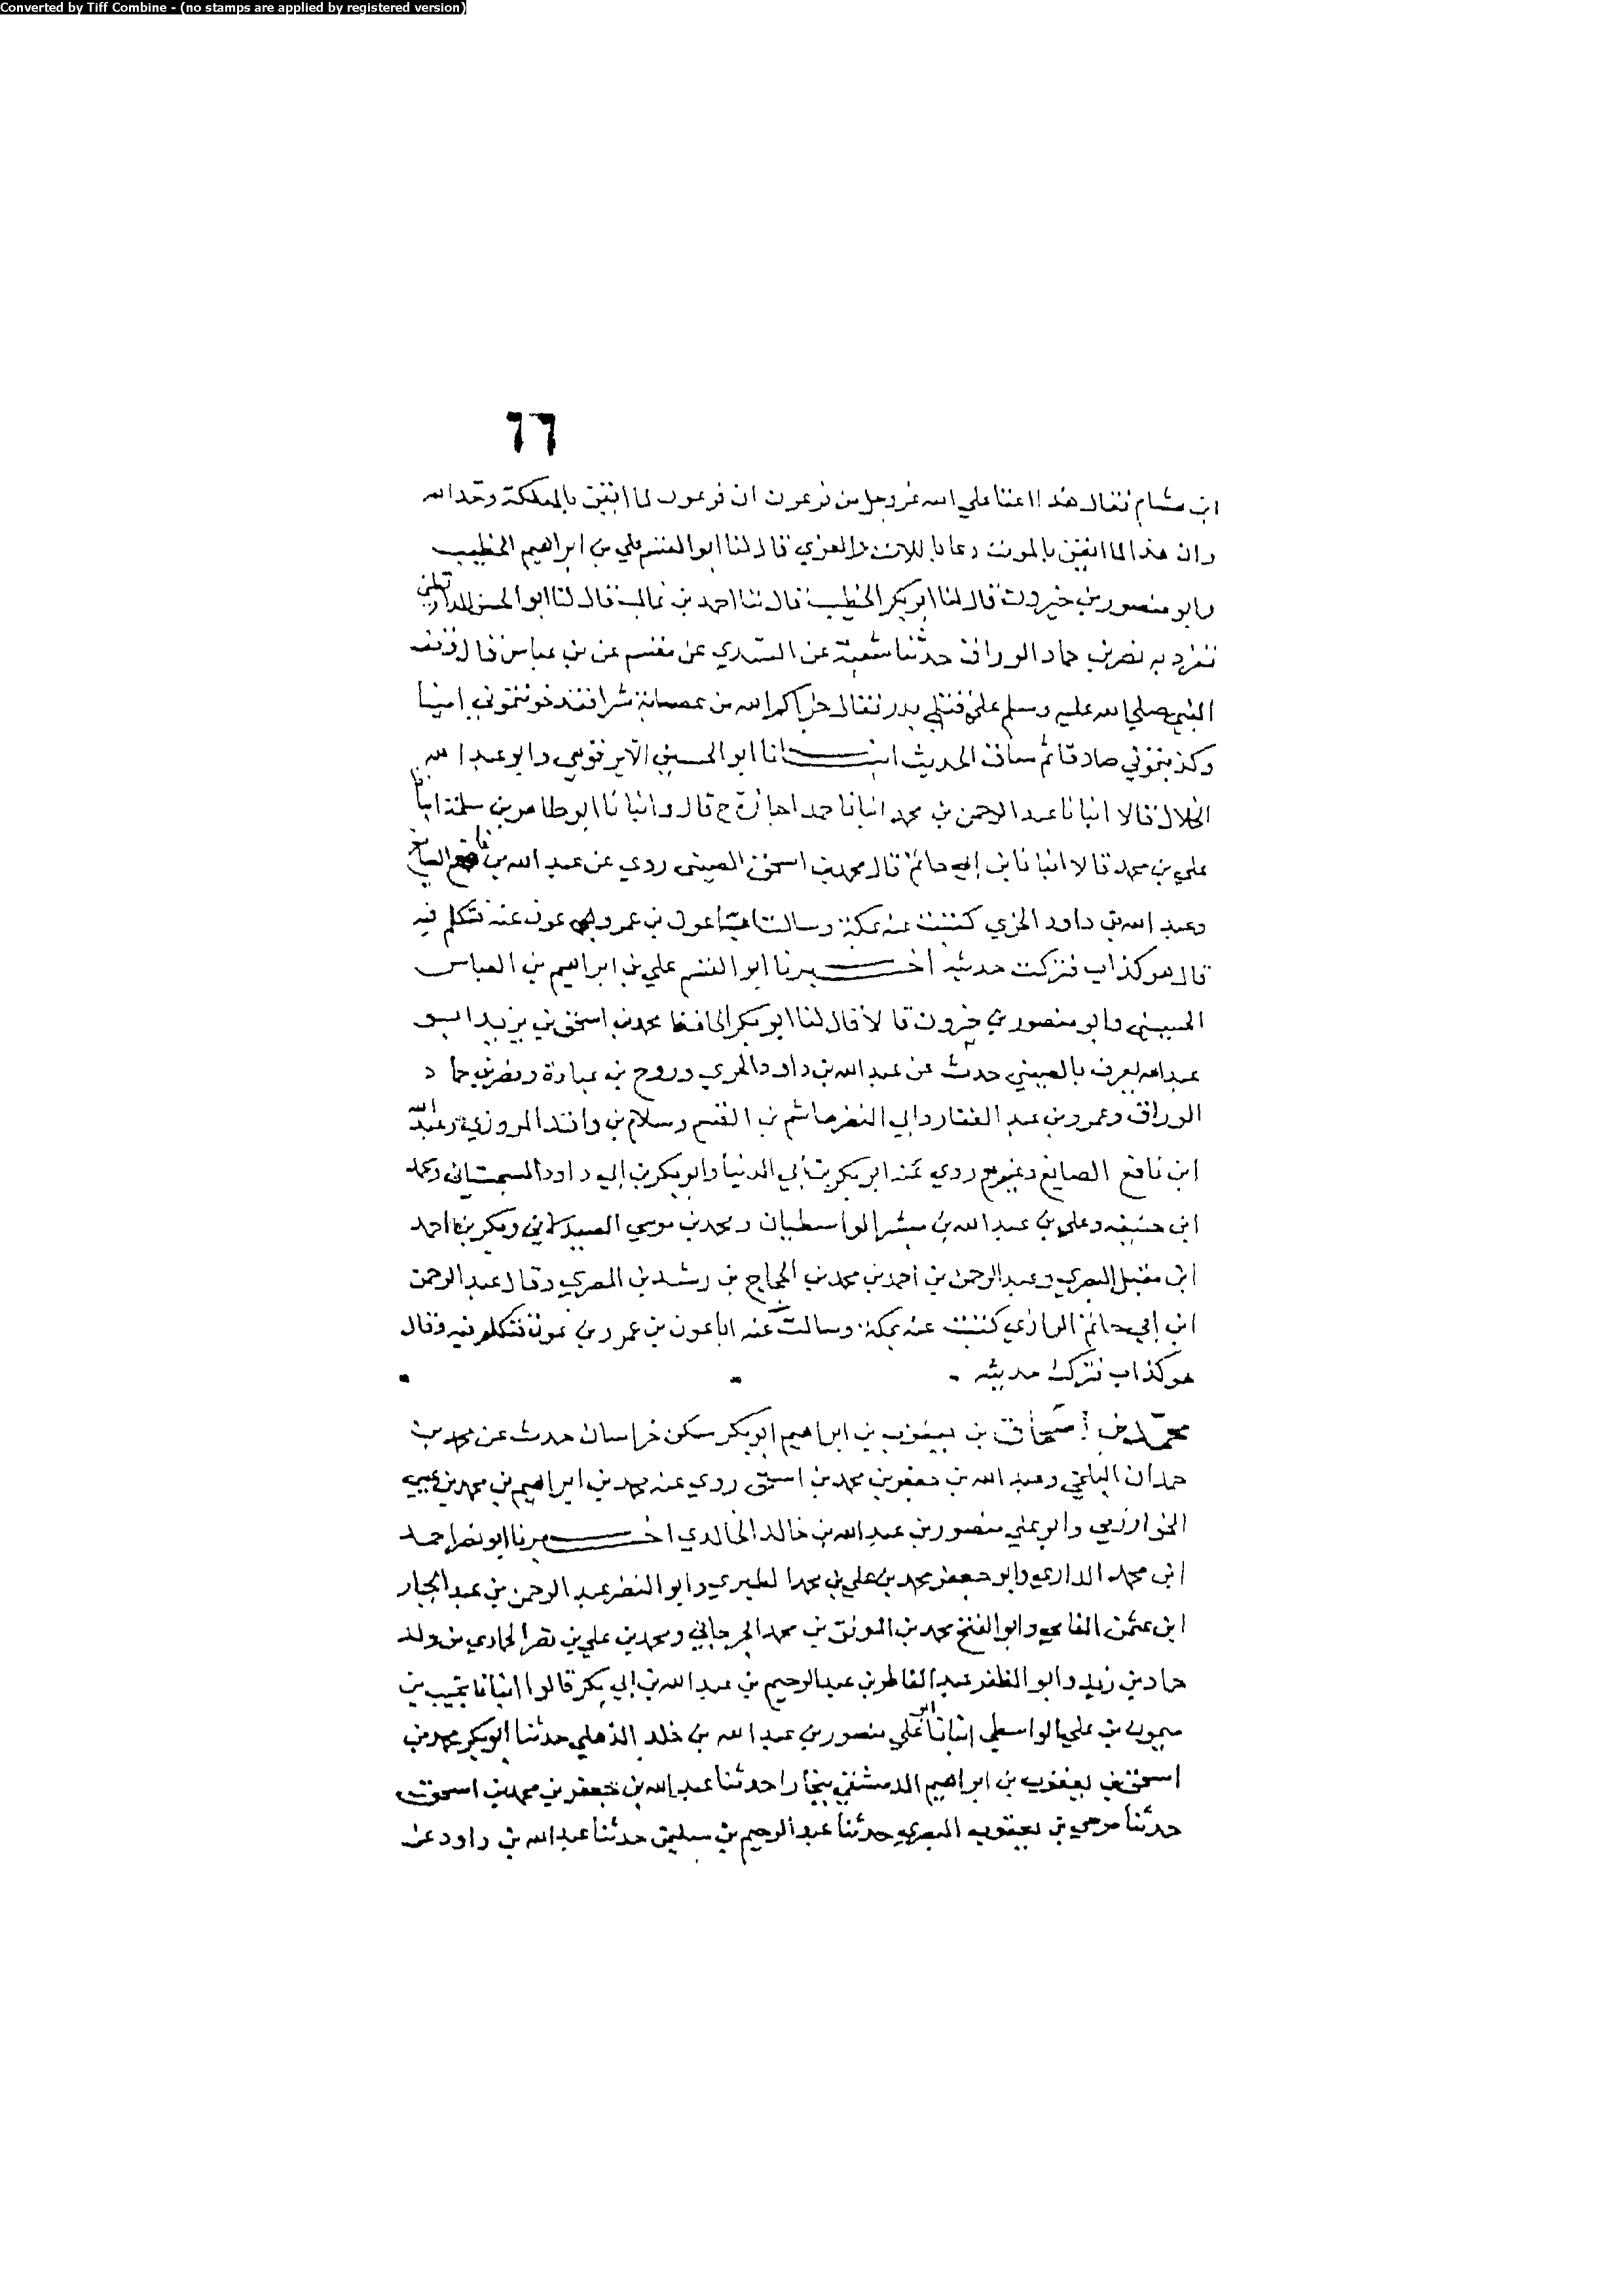 Converted by Tiff Combine - (no stamps are applied by registered version)
٦٦
ابن هشام فقال هذا اعتا علي الله عز وجل من فرعون ان فرعون لما ايقن بالهلكة وحد الله
وان هذا لما ايقن بالموت دعا باللات والعزي قال لنا ابو القسم علي بن ابراهيم الخطيب
وابو منصور بن خيرون قال لنا ابو بكر الخطيب قال لنا احمد بن غالب قال لنا ابو الحسن الدارقطني
تفرد به نصر بن حماد الوراق حدثنا شعبة عن السدي عن مقسم عن بن عباس قال وقف
النبي صلي الله عليه وسلم علي قتلي بدر فقال جزاكم الله من عصابة شرا فقد خونتموني امينا
وكذبتموني صادقا ثم ساق الحديث انبـــانا ابو الحسين الابرقوهي وابو عبد الله
الخلال قالا انبانا عبد الرحمن بن محمد انبانا حمد اجازة ح قال وانبانا ابو طاهر بن سلمة انبا
علي بن محمد قالا انبانا بن ابي حاتم قال محمد بن اسحق الصيني روي عن عبد الله بن نافع الصايغ
وعبد الله بن داود الخري كتبت عنه بمكة وسالت ابا عون بن عمرو بن عون عنه فتكلم فيه
قال هو كذاب فتركت حديثه اخـــبرنا ابو القسم علي بن ابراهيم بن العباس
الحسيني وابو منصور بن خيرون قالا قال لنا ابو بكر الحافظ محمد بن اسحق بن يزيد ابو
عبد الله يعرف بالصيني حدث عن عبد الله بن داود الخري وروح بن عبادة ونصر بن حماد
الوراق وعمرو بن عبد الغفار وابي النضر هاشم بن القسم وسلام بن واقد المروزي وعبد الله
ابن نافع الصايغ وغيرهم روي عنه ابو بكر بن أبي الدنيا وابو بكر بن ابي داود السجستاني ومحمد
ابن حنيفه وعلي بن عبد الله بن مبشر الواسطيان ومحمد بن موسي الصيدلاني وبكر بن احمد
ابن مقبل البصري وعبد الرحمن بن أحمد بن محمد بن الحجاج بن رشدين المصري وقال عبد الرحمن
ابن ابي حاتم الرازي كتبت عنه بمكة وسالت عنه ابا عون بن عمرو بن عون فتكلم فيه وقال
هو كذاب فتركت حديثه
محمد بن إسحاق بن يعقوب بن ابراهيم ابو بكر سكن خراسان حدث عن محمد بن
حمدان البلخي وعبد الله بن جعفر بن محمد بن اسحق روي عنه محمد بن ابراهيم بن محمد بن يحيي
الخوارزمي وابو علي منصور بن عبد الله بن خالد الخالدي اخـــبرنا ابو نصر احمد
ابن محمد الداري وابو جعفر محمد بن علي بن محمد الطبري وابو النضر عبد الرحمن بن عبد الجبار
ابن عثمن الفامي وابو الفتح محمد بن الموفق بن محمد الجرجاني ومحمد بن علي بن نصر الحمادي من ولد
حماد بن زيد وابو المظفر عبد الفاطر بن عبد الرحيم بن عبد الله بن ابي بكر قالوا انبانا نجيب بن
ميمون بن علي الواسطي انبانا ابو علي منصور بن عبد الله بن خلد الذهلي حدثنا ابو بكر محمد بن
اسحق بن يعقوب بن ابراهيم الدمشقي ببخارا حدثنا عبد الله بن جعفر بن محمد بن اسحق
حدثنا مرجي بن يعقوب البصري حدثنا عبد الرحيم بن سليمن حدثنا عبد الله بن داود عن